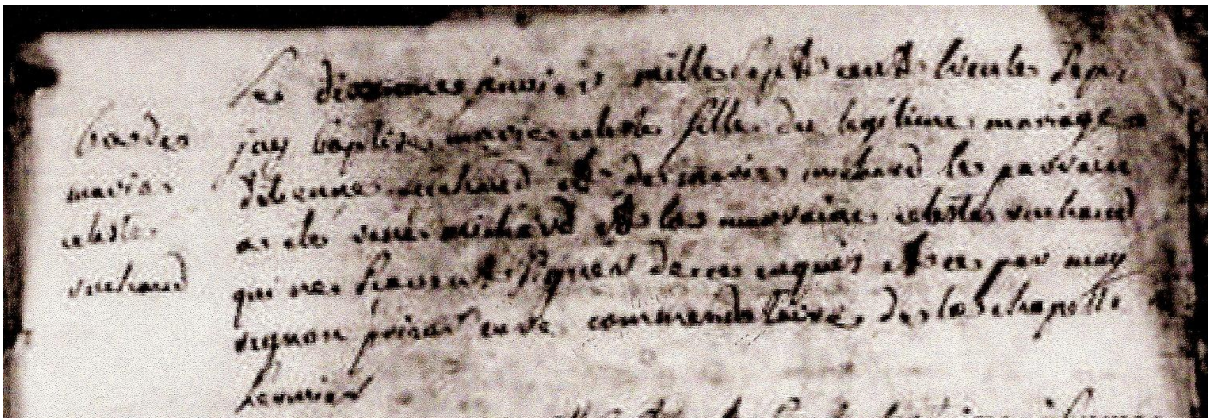 marie
celeste
vachaud
Les janvier mille sept cent trente sept
jay baptisé marie celeste fille du legitime mariage
d'etienne vachaud et de marie michard le parrain
a été michard et la marraine celeste vachaud
qui ne scavent signer de ce enquis et ce par moy
vignon prieur curé commendataire de la chapelle